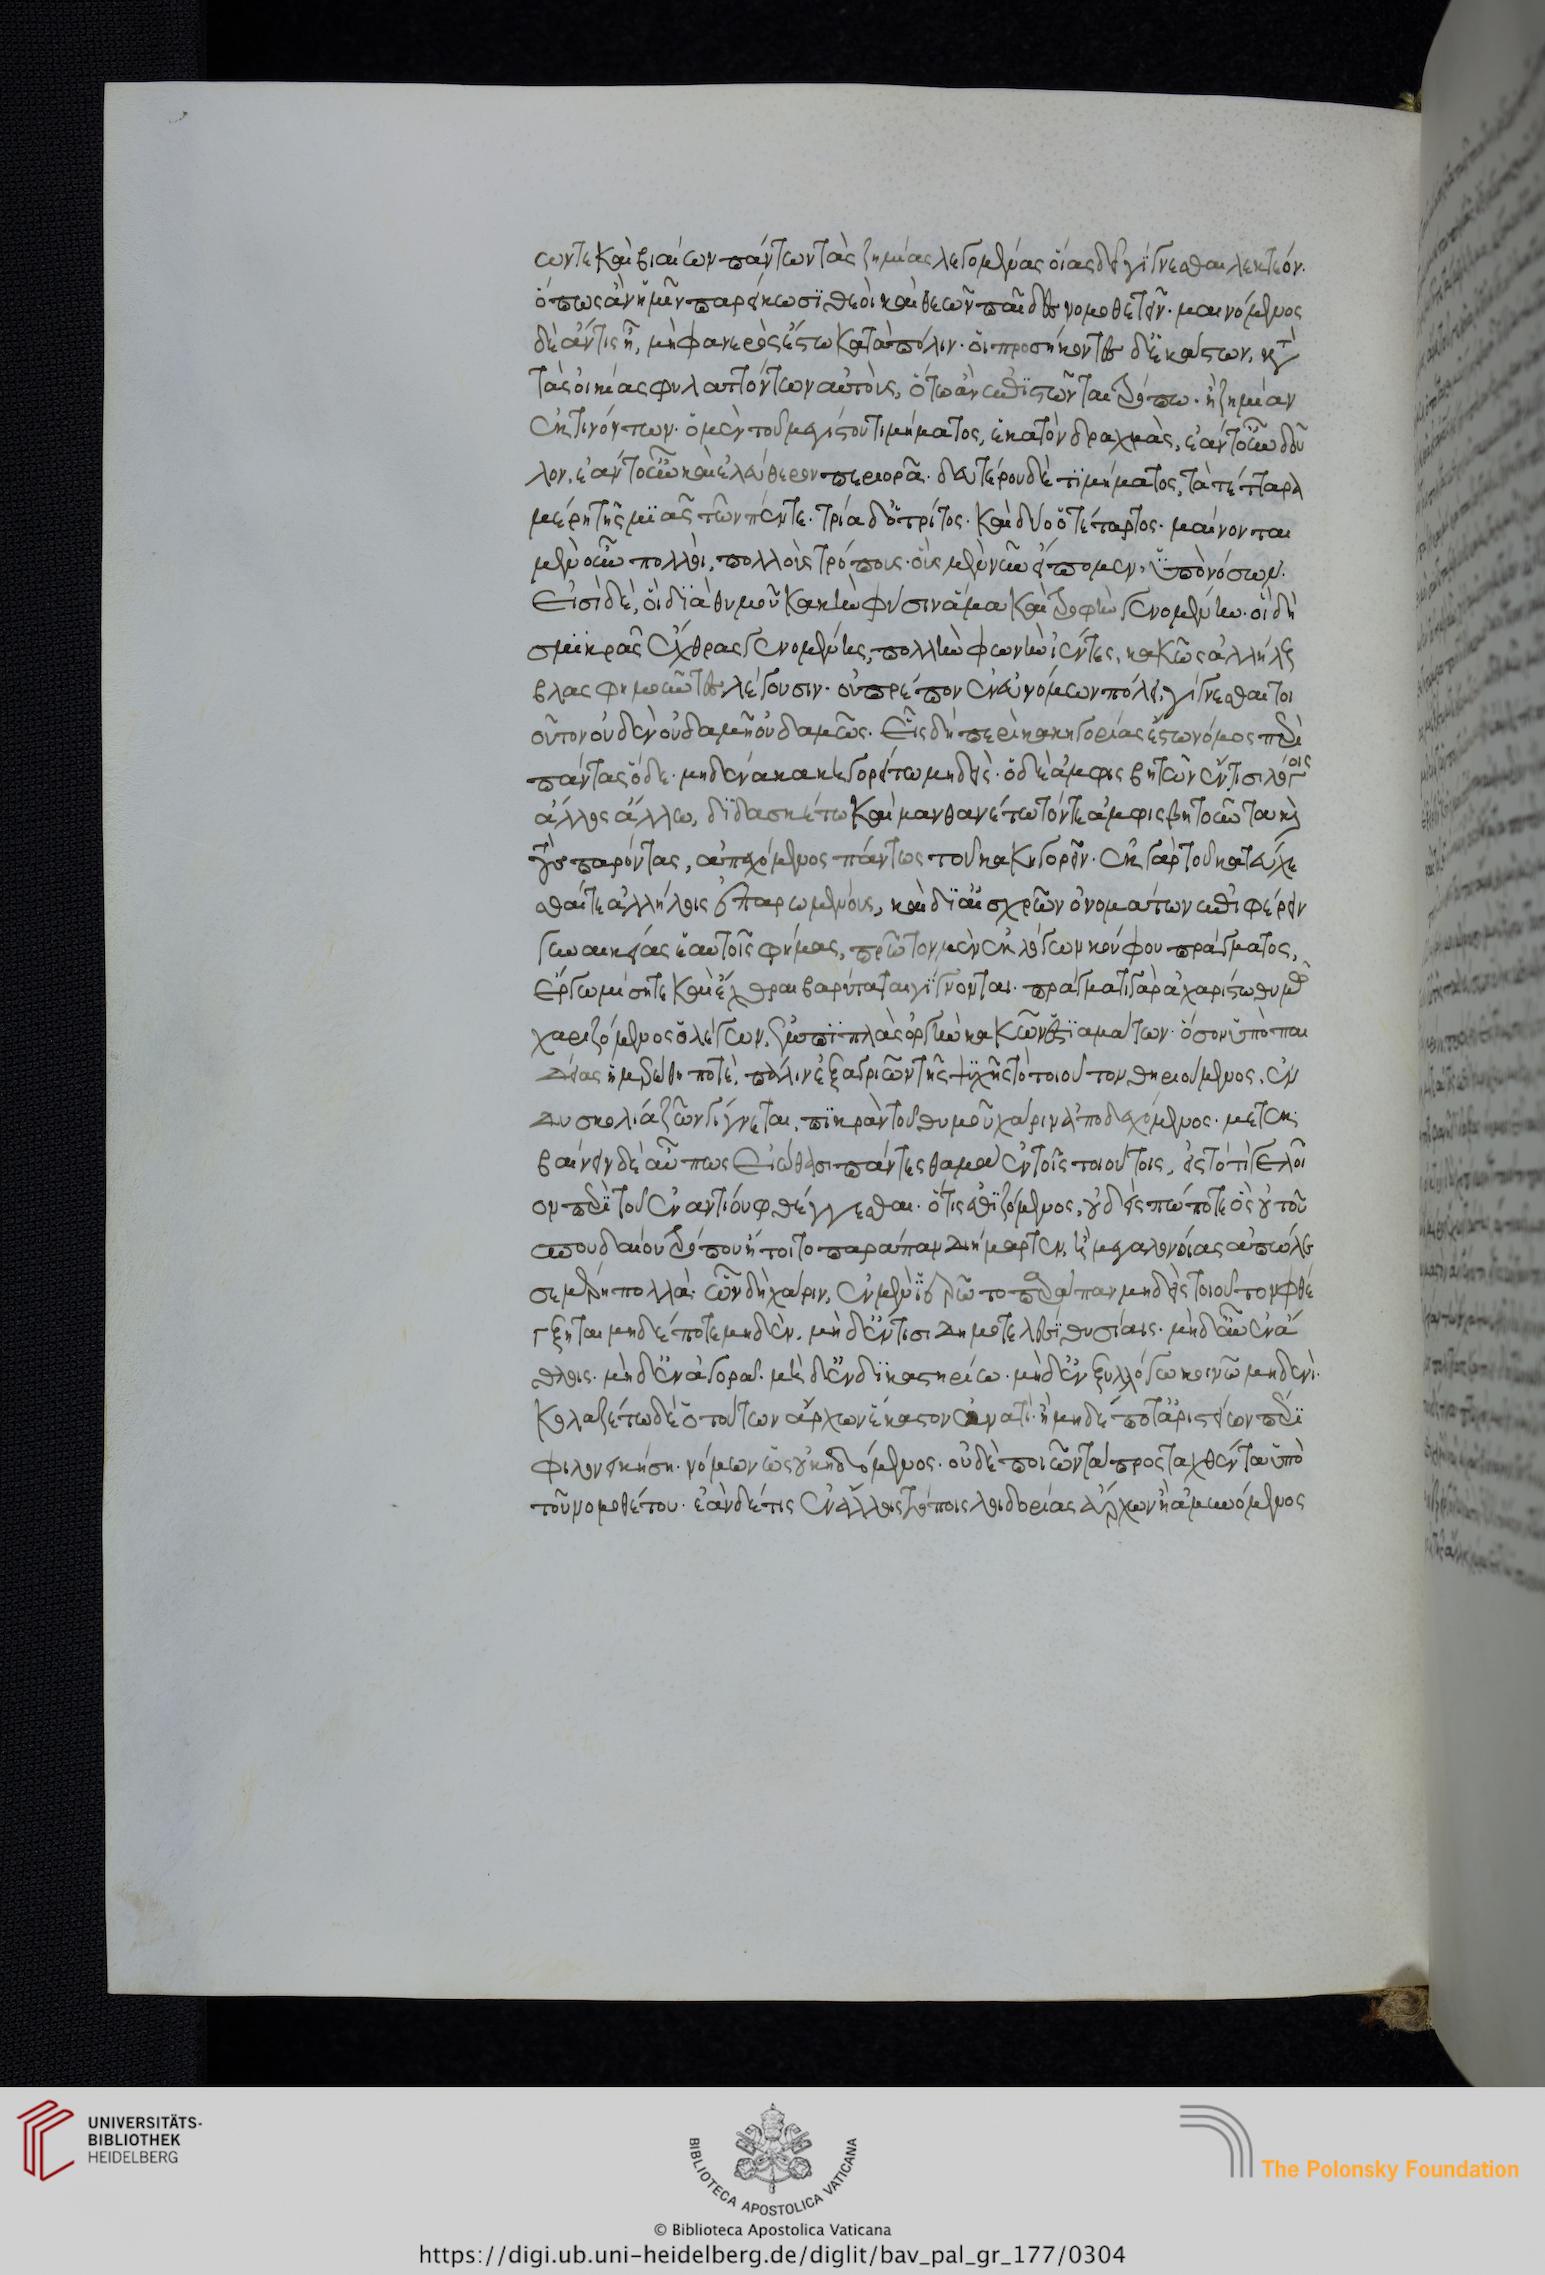 ων τε καὶ βιαίων πάντων τὰς ζημίας λεγομένας οἵας δεῖ γίγνεσθαι λεκτέον.
ὅπως ἂν ἡμῖν παρείκωσι θεοὶ καὶ θεῶν παῖδες νομοθετεῖν. μαινόμενος
δὲ ἄν τις ᾖ, μὴ φανερὸς ἔστω κατὰ πόλιν. οἱ προσήκοντες δ' ἑκάστων, κατὰ
τὰς οἰκίας φυλαττόντων αὐτοὺς, ὅτῳ ἂν ἐπίστωνται τρόπῳ. ἢ ζημίαν
ἐκτινόντων. ὁ μὲν τοῦ μεγίστου τιμήματος, ἑκατὸν δραχμὰς, ἐάν τ' οὖν δοῦ
λον, ἐάν τ' οὖν καὶ ἐλεύθερον περιορᾷ. δευτέρου δὲ τιμήματος, τέτταρα
μέρη τῆς μιᾶς τῶν πέντε. τρία δ' ὁ τρίτος. καὶ δύο ὁ τέταρτος. μαίνονται
μὲν οὖν πολλοὶ, πολλοὺς τρόπους. οὓς μὲν νῦν εἴπομεν, ὑπὸ νόσων.
Εἰσὶ δὲ, οἳ διὰ θυμοῦ κακὴν φύσιν ἅμα καὶ τροφὴν γενομένην. οἳ δὴ
σμικρᾶς ἔχθρας γενομένης, πολλὴν φωνὴν ἱέντες, κακῶς ἀλλήλους
βλασφημοῦντες λέγουσιν. οὐ πρέπον ἐν εὐνόμων πόλει, γίγνεσθαι τοι
οῦτον οὐδὲν οὐδαμῇ οὐδαμῶς. Εἷς δὴ περὶ κακηγορίας ἔστω νόμος περὶ
πάντας ὅδε. μηδένα κακηγορείτω μηδείς. ὁ δὲ ἀμφισβητῶν ἔν τισι λόγοις
ἄλλος ἄλλῳ, διδασκέτω καὶ μανθανέτω τόν τε ἀμφισβητοῦντα καὶ
τοὺς παρόντας, ἀπεχόμενος πάντως τοῦ κακηγορεῖν. ἐκ γὰρ τοῦ κατεύχε
σθαί τε ἀλλήλοις ἐπαρωμένους, καὶ δι' αἰσχρῶν ὀνομάτων ἐπιφέρειν
γυναικείας ἑαυτοῖς φήμας, πρῶτον μὲν ἐκ λόγων κούφου πράγματος,
ἔργῳ μίση τε καὶ ἔχθραι βαρύταται γίγνονται. πράγματι γὰρ ἀχαρίστῳ θυμῷ
χαριζόμενος ὁ λέγων, ἐμπιπλὰς ὀργὴν κακῶν ἑστιαμάτων. ὅσον ὑπὸ παι
δείας ἡμερώθη ποτὲ, πάλιν ἐξαγριῶν τῆς ψυχῆς τὸ τοιοῦτον θηριούμενος, ἐν
δυσκολίᾳ ζῶν γίγνεται, πικρὰν τοῦ θυμοῦ χάριν ἀποδεχόμενος. μετεκ
βαίνειν δὲ αὖ πως εἰώθασι πάντες θαμὰ ἐν τοῖς τοιούτοις, εἰς τό τι γελοῖ
ον περὶ τοῦ ἐναντίου φθέγγεσθαι. ὅ τις ἐθιζόμενος, οὐδεὶς πώποτε ὃς οὐ τοῦ
σπουδαίου τρόπου ἤτοι τὸ παράπαν διήμαρτεν, ἢ μεγαλονοίας ἀπώλε
σε μέρη πολλά. ὧν δὴ χάριν, ἐν μὲν ἱερῷ τὸ παράπαν μηδεὶς τοιοῦτον φθέ
γξηται μηδέποτε μηδὲν, μηδ' ἔν τισι δημοτελέσι θυσίαις. μηδ' αὖ ἐν ἄ
θλοις. μηδ' ἐν ἀγορᾷ. μηδ' ἐν δικαστηρίῳ. μηδ' ἐν ξυλλόγῳ κοινῷ μηδενί.
κολαζέτω δὲ ὁ τούτων ἄρχων ἕκαστον ἀνατί. ἢ μηδέποτ' ἀριστείων πέρι
φιλονεικήσῃ. νόμων ὡς οὐ κηδόμενος. οὐδὲ ποιῶν τὰ προσταχθέντα ὑπὸ
τοῦ νομοθέτου. ἐὰν δέ τις ἐν ἄλλοις τόποις λοιδορίας ἄρχων ἢ ἀμυνόμενος
UNIVERSITÄTS-
BIBLIOTHEK
HEIDELBERG
BIBLIOTECA APOSTOLICA VATICANA
The Polonsky Foundation
© Biblioteca Apostolica Vaticana
https://digi.ub.uni-heidelberg.de/diglit/bav_pal_gr_177/0304